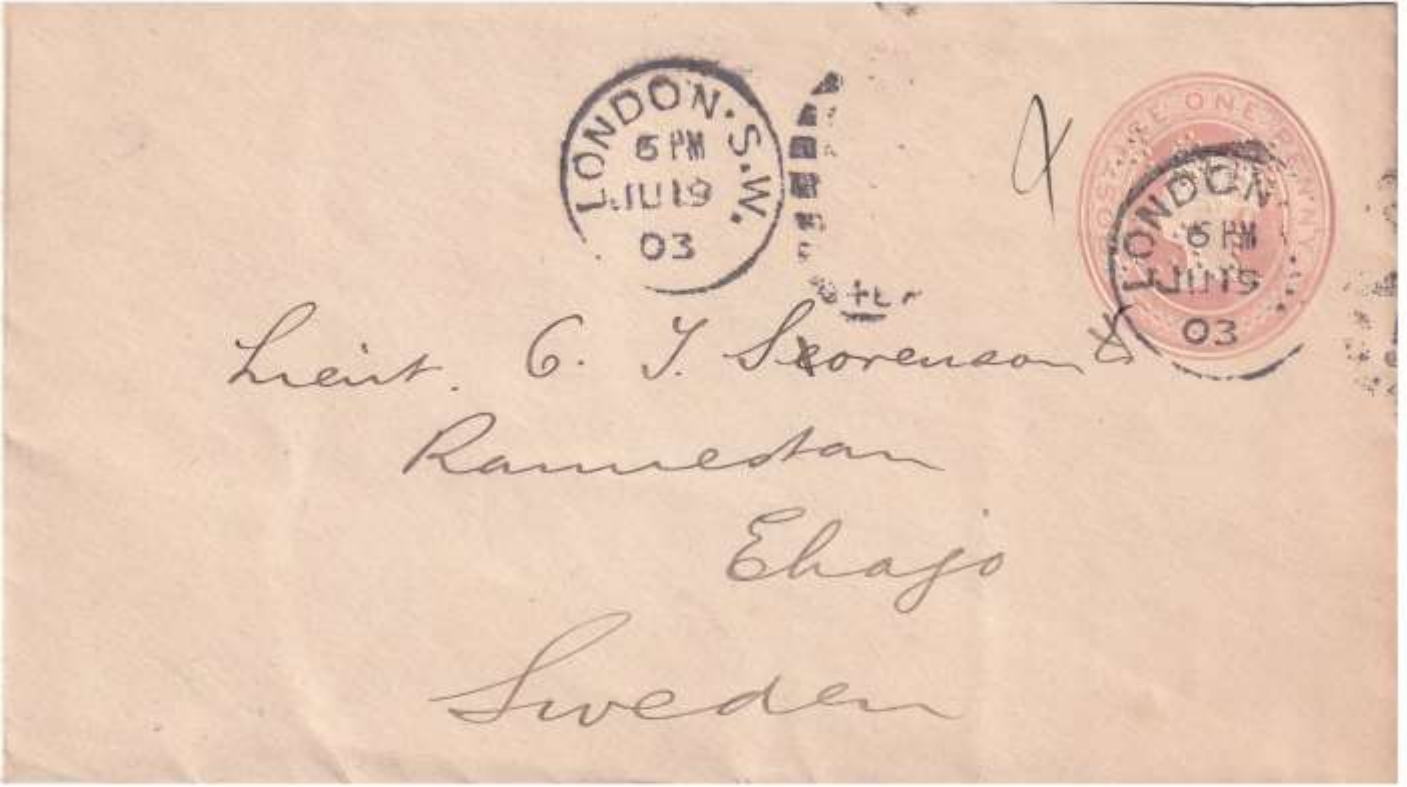 LONDON.S.W.
6 PM
JU 19
03
POSTAGE ONE PENNY
LONDON.
6 PM
JU 19
03
Lieut. C. J. Sorenson
Ramnestan
Ekajo
Sweden